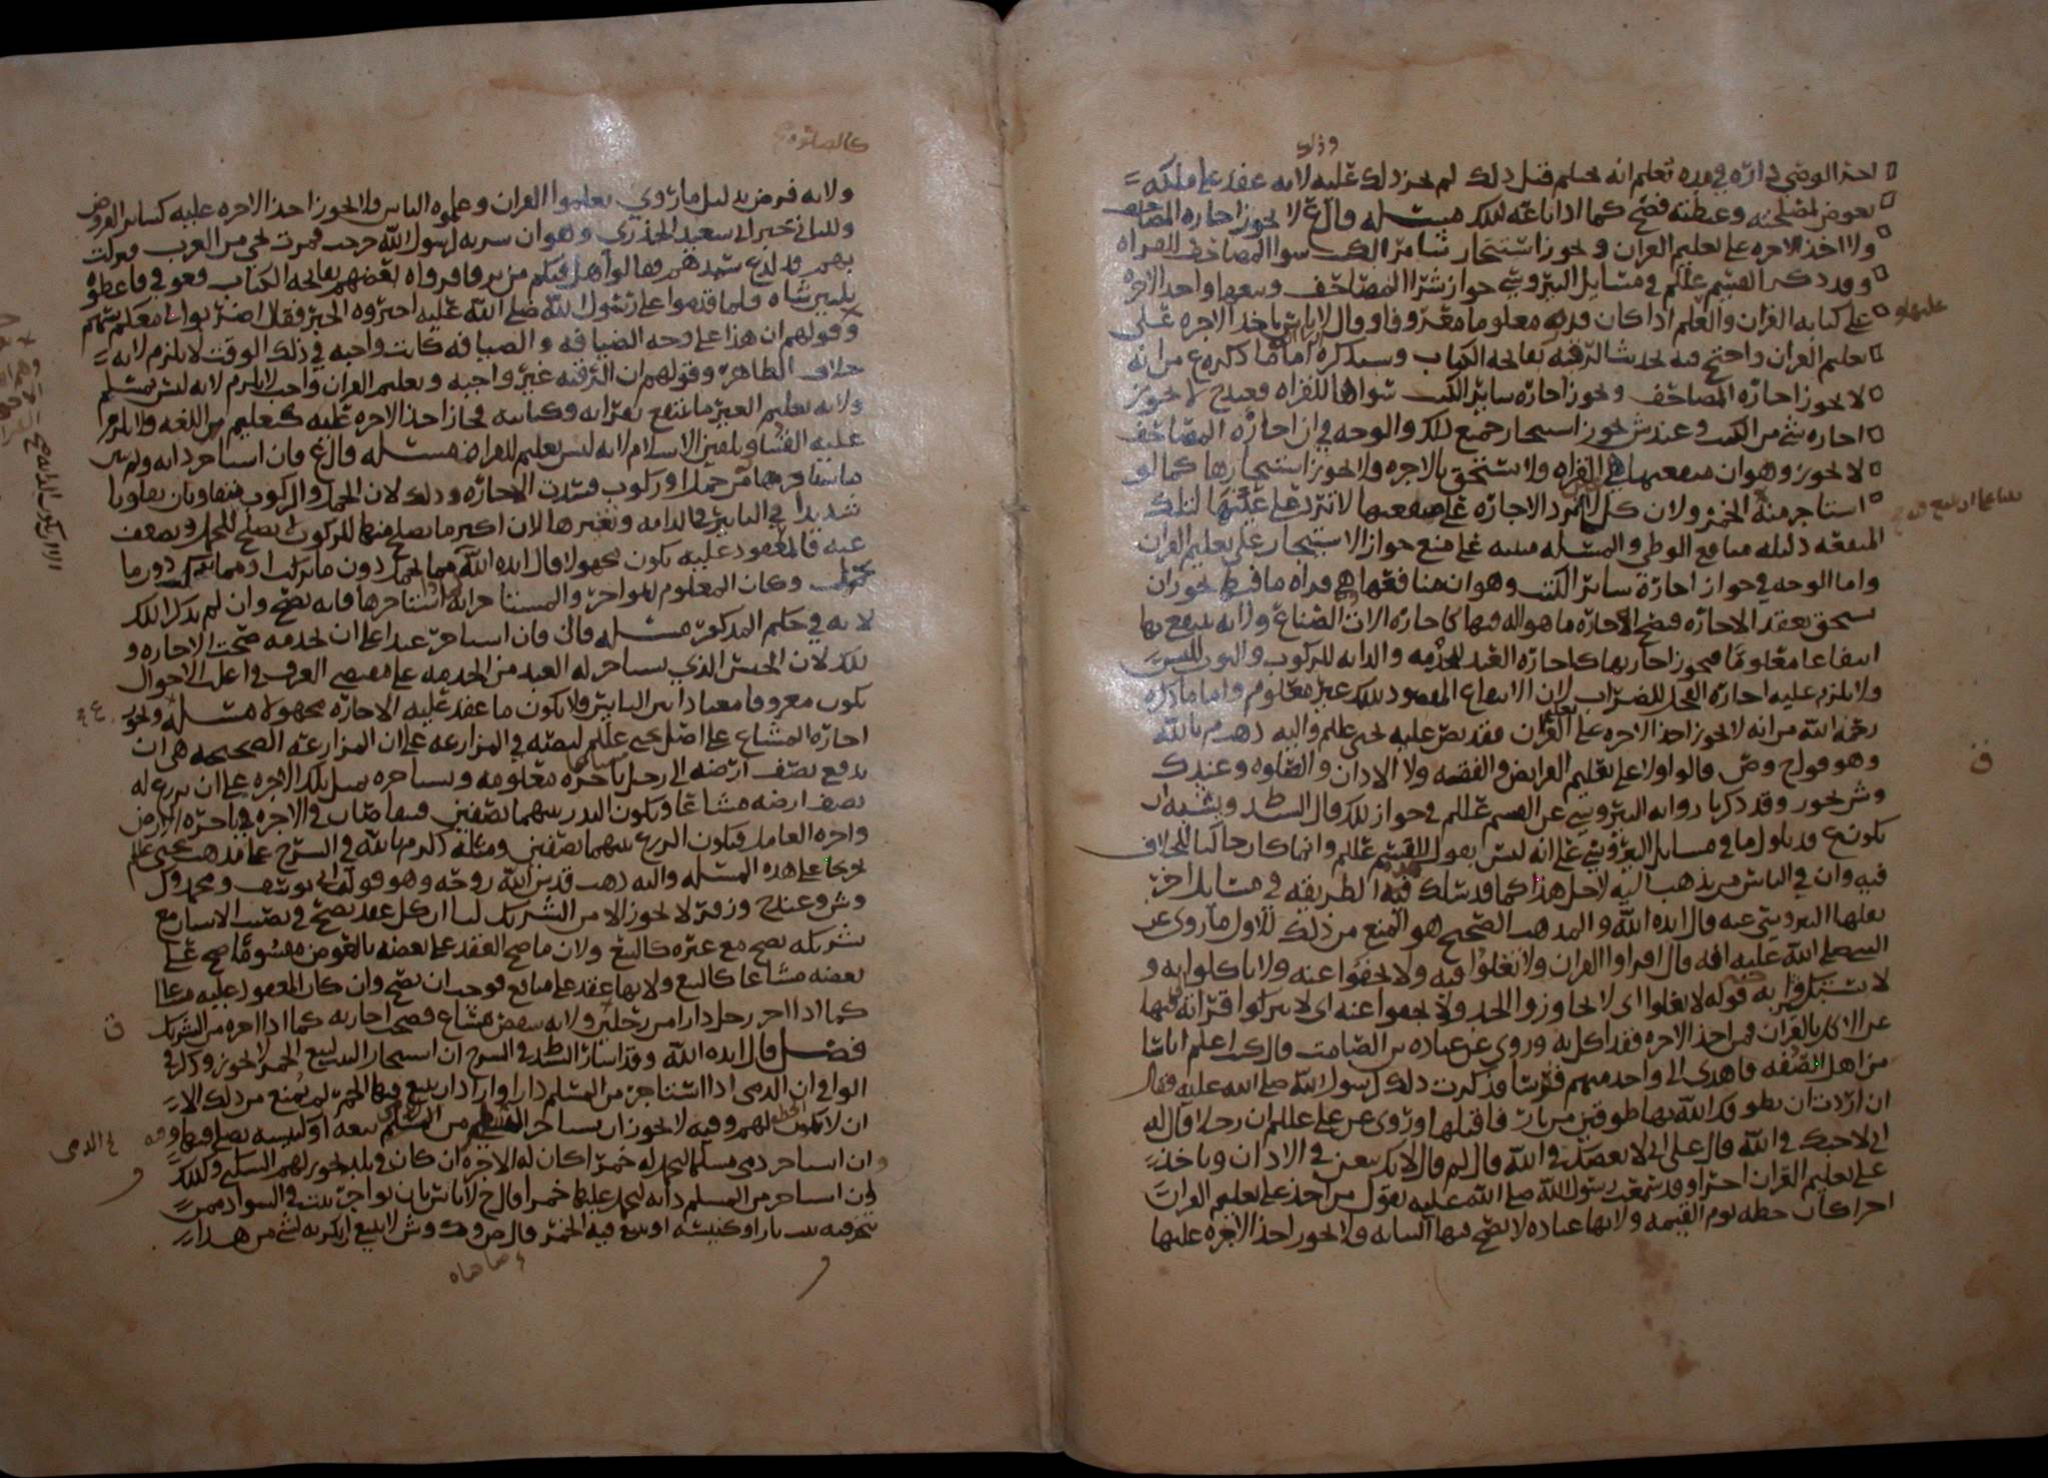 وذلك
احر الوصي داره في مده تعلم انه يحتلم قبل ذلك لم يجز ذلك عليه لانه عقد على ملكه
بعوض لمصلحته وغبطته فصح كما اذا باعه لذلك مسئله قال ع لا يجوز اجاره المصاحف
ولا اخذ الاجره على تعليم القران ويجوز استئجار سائر الكتب سوا المصاحف للقراه
وقد ذكر القسم عللم في مسائل النيروسي جواز شرا المصاحف وبيعها واخذ الاجره
على كتابه القران والعلم اذا كان قدره معلوما معروفا وقال لا باس باخذ الاجره على
تعليم القران واحتج فيه بحديث الرقيه بفاتحه الكتاب وسنذكره اما ما ذكره ع من انه
لا يجوز اجاره المصاحف ويجوز اجاره سائر الكتب سواها للقراه فعند ح لا يجوز
اجاره شي من الكتب وعند ش يجوز استئجار جميع ذلك والوجه في ان اجاره المصاحف
لا يجوز وهو ان منفعتها هي القراه ولا يستحق بالاجره ولا يجوز استئجارها كما لو
استاجر منه الخبز ولان كل ما لم ترد الاجاره على منفعتها لا ترد على عينها لتلك
المنفعه دليله منافع الوطي والمسئله مبنيه على منع جواز الاستئجار على تعليم القران
واما الوجه في جواز اجارة سائر الكتب وهو ان منافعها هي قراه ما فيها يجوز ان
يستحق بعقد الاجاره فتصح الاجاره ما هو اله فيها كاجاره الات الصناع ولانه ينتفع بها
انتفاعا معلوما فيجوز اجارتها كاجاره العبد للخدمه والدابه للركوب والثوب للبس
ولا يلزم عليه اجارة الفحل للضراب لان الانتفاع المقصود بذلك غير معلوم واما ما ذكره
رحمه الله من انه لا يجوز اخذ الاجره على تعليم القران فقد نص عليه يحيى عللم واليه ذهب م بالله
وهو قول ح وص قالوا ولا على تعليم الفرايض والفقه ولا الاذان والصلوه وعند ك
وش يجوز وقد ذكرنا روايه النيروسي عن القسم علللم في جواز ذلك قال السيد ويشبه ان
يكون ع قد تاول ما في مسايل النيروسي على انه ليس بقول للقسم علللم وانما كان حاكيا للخلاف
فيه وان في الناس من يذهب اليه لاجل هذا كما قد سلك هذه الطريقه في مسايل اخر
نقلها النيروسي عنه قال ايده الله والمذهب الصحيح هو المنع من ذلك للاول ما روي عن
النبي صلى الله عليه انه قال اقراوا القران ولا تغلوا فيه ولا تجفوا عنه ولا تاكلوا به و
لا تستكثروا به قوله لا تغلوا اي لا تجاوزوا الحد ولا تجفوا عنه اي لا تتركوا قراته فنها
عن الاكل بالقران فمن اخذ الاجره فقد اكل به وروي عن عباده بن الصامت قال كنت اعلم اناسا
من اهل الصفه فاهدى الي واحد منهم قوسا فذكرت ذلك لرسول الله صلى الله عليه فقال
ان اردت ان يطوقك الله بها طوقا من نار فاقبلها وروى عن علي علللم ان رجلا قال له
اني لاحبك في الله قال علي اني لا بغضك في الله قال لم قال لانك تبغي في الاذان وتاخذ
على تعليم القران اجرا وقد سمعت رسول الله صلى الله عليه يقول من اخذ على تعليم القران
اجرا كان حظه يوم القيمه ولانها عباده لا تصح فيها النيابه فلا يجوز اخذ الاجره عليها
ف
كالصلوه
ولانه فرض بدليل ما روي تعلموا القران وعلموه الناس فلا يجوز اخذ الاجره عليه كسائر الفروض
وللثاني خبر ابي سعيد الخدري وهو ان سريه لرسول الله خرجت فمرت بحي من العرب فنزلت
بهم قد لدغ سيدهم فقالوا هل فيكم من يرقا فرقاه بعضهم بفاتحه الكتاب فعوفي فاعطوه
ثلثين شاه فلما قدموا على رسول الله صلى الله عليه اخبروه الخبر فقال اضربوا لي معكم بسهم
وقولهم ان هذا على وجه الضيافه والضيافه كانت واجبه في ذلك الوقت لا يلزم لانه
خلاف الظاهر وقولهم ان الرقيه غير واجبه وتعليم القران واجب لا يلزم لانه ليس بمسلم
ولانه تعليم الغير ما ينتفع بقراته وكتابته فجاز اخذ الاجره عليه كتعليم من اللغه ولا يلزم
عليه الفتيا وتلقين الاسلام لانه ليس بتعليم للقراه مسئله قال ع فان استاجر دابه ولم يبين
ما يستاجرها من حمل او ركوب فسدت الاجاره وذلك لان الحمل والركوب يتفاوتان تفاوتا
شديدا في التاثير في الدابه وتغيرها لان اكثر ما يصلح منها للركوب لا يصلح للحمل ويضعف
عنه فالمعقود عليه يكون مجهولا قال ايده الله فيما يحمل دون ما يركب او مما يركب دون ما
يحمل وكان المعلوم للمواجر والمستاجر انه استاجرها فانه يصح وان لم يذكر ذلك
لانه في حكم المذكور مسئله قال فان استاجر عبدا على ان يخدمه صحت الاجاره و
ذلك لان الجنس الذي يستاجر له العبد من الخدمه على مقتضى العرف في اغلب الاحوال
يكون معروفا معتادا بين الناس فلا يكون ما عقد عليه الاجاره مجهولا مسئله ويجوز
اجارة المشاع على اصل يحيى علللم لنصه في المزارعه على ان المزارعه الصحيحه هي ان
يدفع نصف ارضه الى رجل باجره معلومه ويستاجره بمثل تلك الاجره على ان يزرع له
نصف ارضه مشاعا ويكون البذر بينهما نصفين فيتقاصان في الاجره في باجره الارض
واجره العامل فيكون الزرع بينهما نصفين ومثله ذكر م بالله في الشرح على مذهب يحيى علللم
تخريجا على هذه المسئله واليه ذهب قدس الله روحه وهو قول ابي يوسف ومحمد وك
وش وعند ح وزفر لا يجوز الا من الشريك لنا ان كل عقد يصح في نصيب الانسان مع
شريكه يصح مع غيره كالبيع ولان ما صح العقد على بعضه بالعوض مقسوما صح على
بعضه مشاعا كالبيع ولانها عقد على منافع فوجب ان يصح وان كان المعقود عليه مشاعا
كما اذا اجر رجل دارا من رجلين ولانه بعض مشاع فصحت اجارته كما اذا اجره من الشريك
فصل قال ايده الله وقد اشار السيد في الشرح ان استئجار البيت لبيع الخمر لا يجوز وذكر في
الوافي ان الذمي اذا استاجر من المسلم دارا واراد ان يبيع فيها الخمر لم يمنع من ذلك الا
ان لا تكون الخطه لهم وفيه لا يجوز ان يستاجر الذمي من المسلم بيعه او كنيسه يصلي فيها
وان استاجر ذمي مسلما ليحمل له خمرا كان له الاجره ان كان في بلد يجوز لهم السكنى وكذلك
ان استاجر من المسلم دابه ليحمل عليها خمرا قال ح لا باس بان يواجر بيت في السواد ممن
يتخذ فيه بيت نار او كنيسه او يبيع فيه الخمر وقال ص وف وش لا ينبغي ان يكريه لشي من هذا
ف